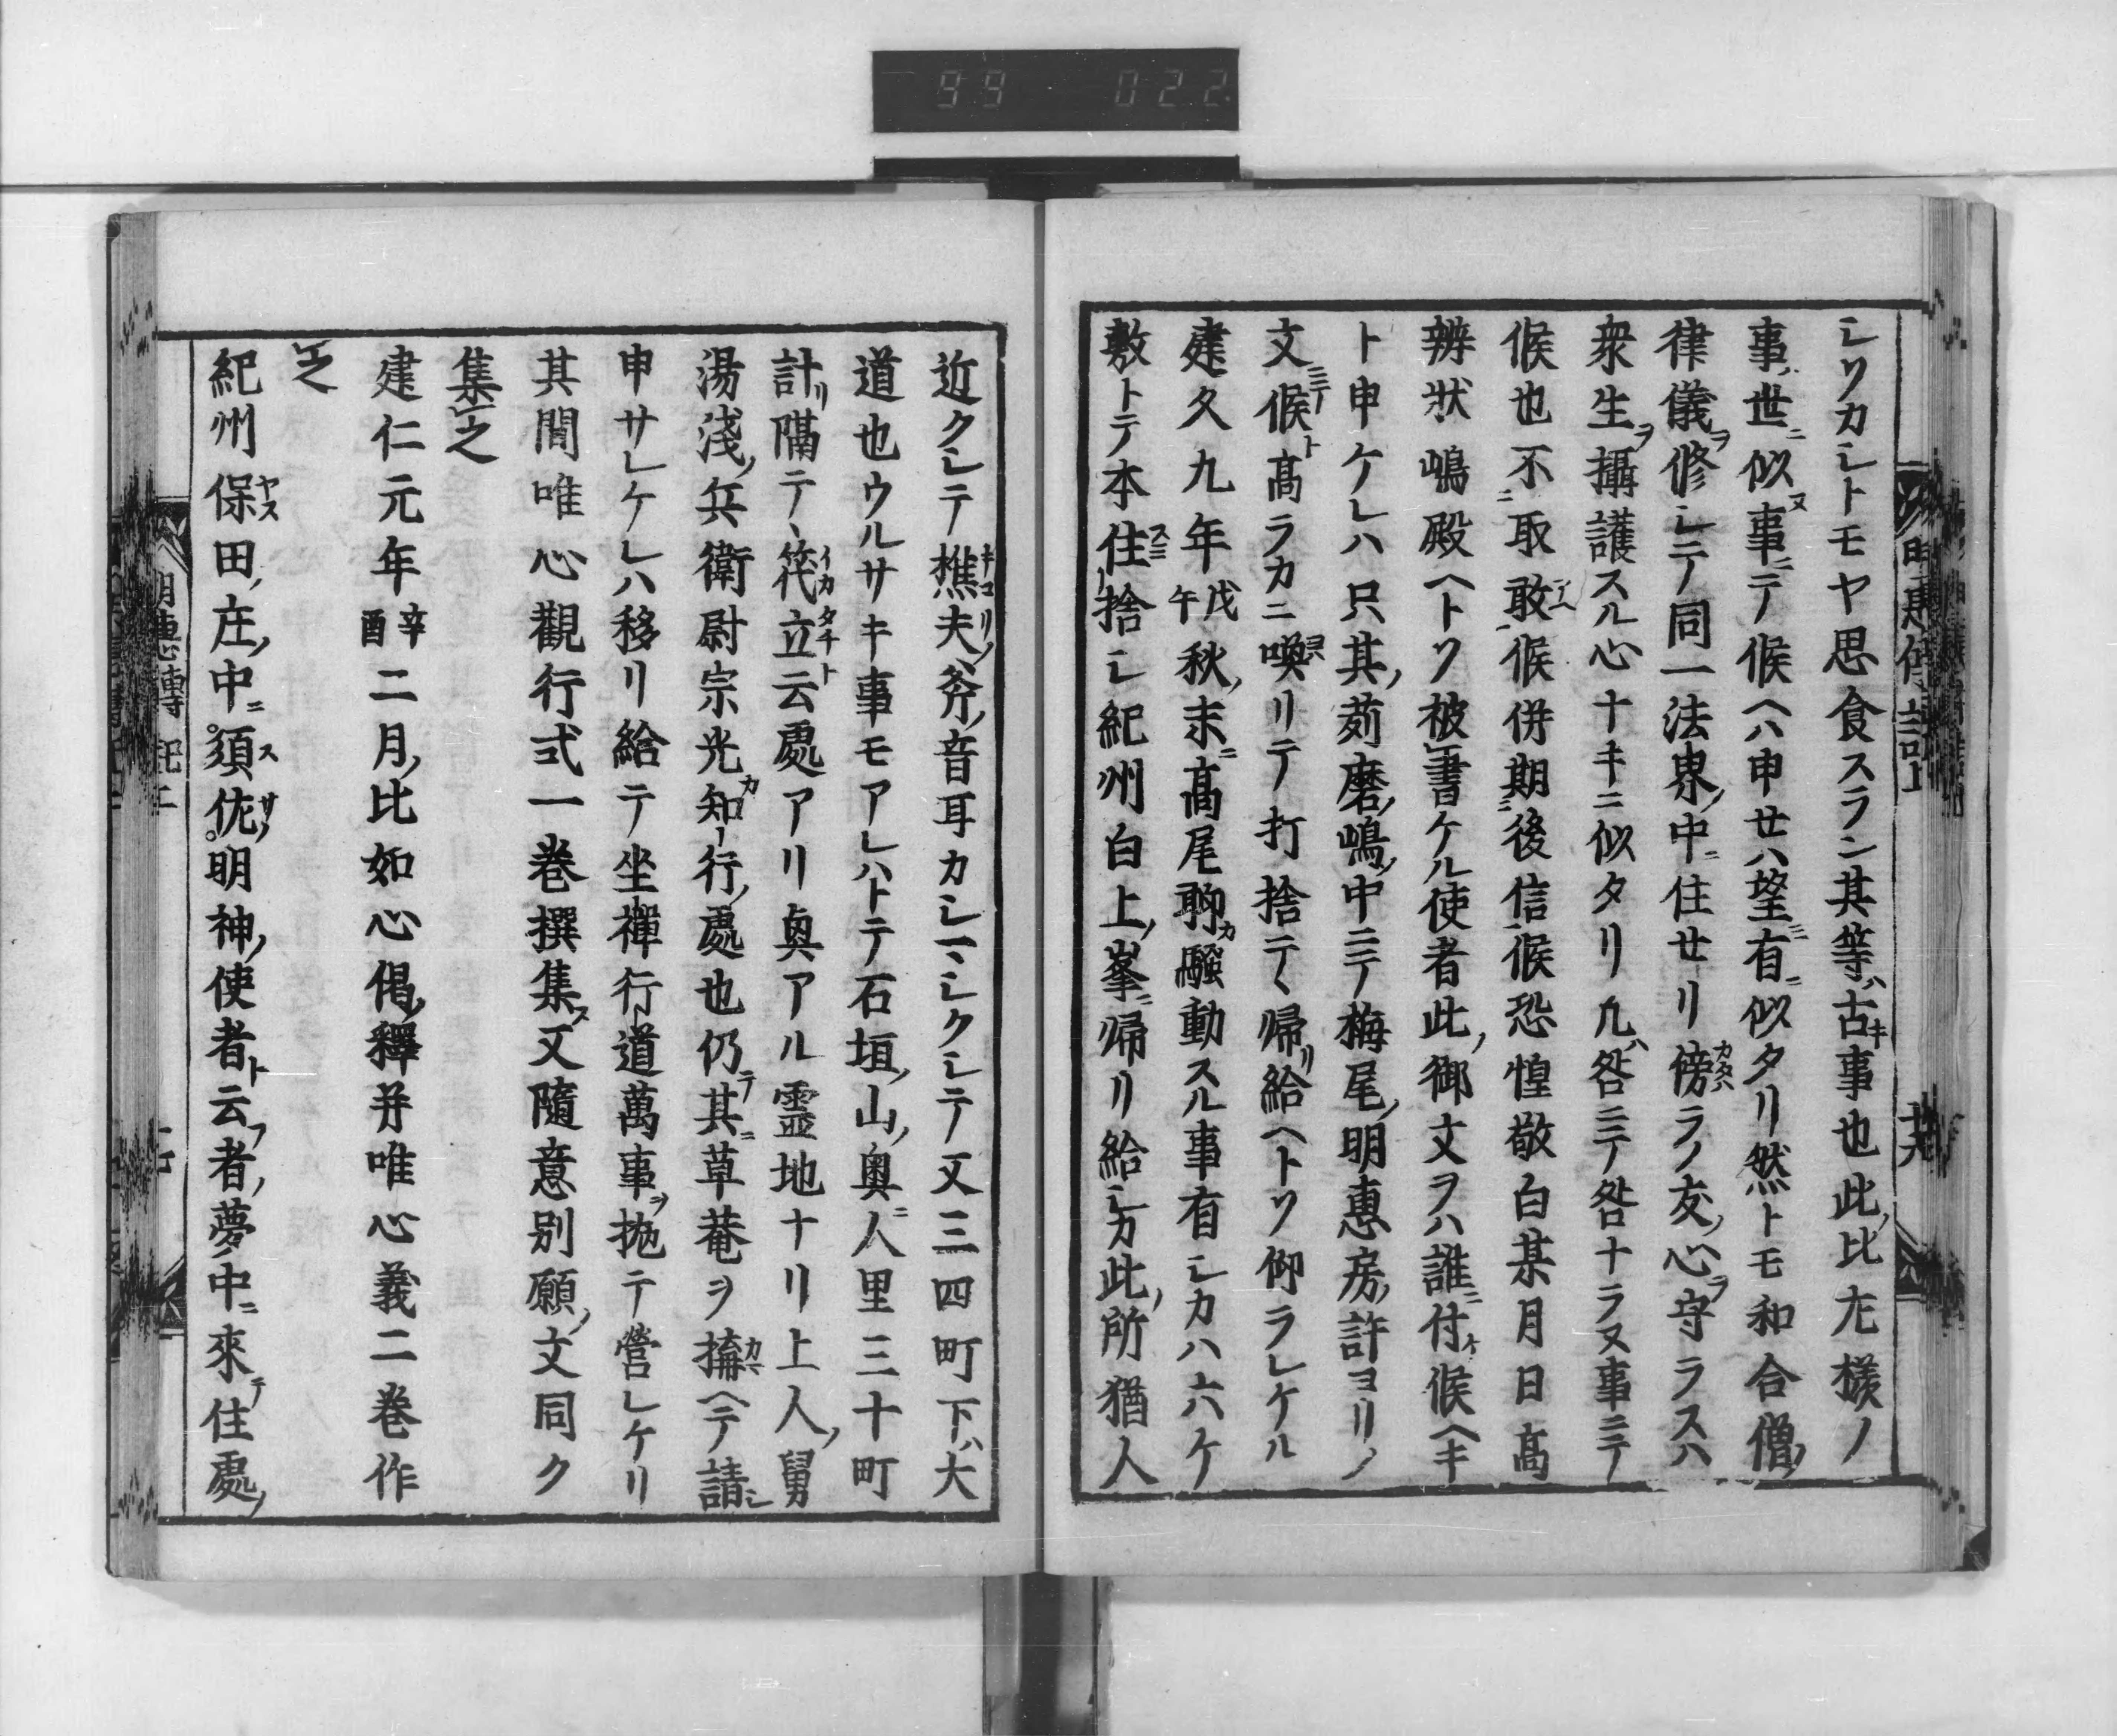 シツカシトモヤ思食スラン其等ハ古キ事也此ノ比尤様ノ
事ノ世ニ似ヌ事ニテ候ヘハ申セハ望ミ有ニ似タリ然トモ和合僧ノ
律儀ヲ修シテ同一法界ノ中ニ住セリ傍ラノ友ノ心ヲ守ラスハ
衆生ヲ攝護スル心ナキニ似タリ凡ハ咎ニテ咎ナラヌ事ニテ
候也不取敢候併期後信候恐惶敬白某月日高
辨狀嶋殿ヘトソ被書ケル使者此ノ御文ヲハ誰ニ付ケ候ヘキ
ト申ケレハ只其ノ苅磨ノ嶋ノ中ニテ梅尾ノ明惠房ノ許ヨリノ
文ニテ候ト高ラカニ喚リテ打捨テ〱歸リ給ヘトソ仰ラレケル
建久九年戊午秋ノ末ニ高尾聊カ騷動スル事有シカハ六ケ
敷トテ本住ミ捨シ紀州白上ノ峯ニ歸リ給シカ此ノ所猶人
近クシテ樵夫ノ斧ノ音耳カシマシクシテ又三四町下ハ大
道也ウルサキ事モアレハトテ石垣ノ山ノ奥ニ人里三十町
計リ隔テヽ筏立ト云處アリ奥アル靈地ナリ上人ノ舅
湯淺ノ兵衛尉宗光カ知行ノ處也仍テ其ニ草菴ヲ搆ヘテ請シ
申サレケレハ移リ給テ坐禪行道萬事ヲ抛テ營レケリ
其間唯心觀行式一巻撰集ス又隨意別願ノ文同ク
集之
建仁元年辛酉二月ノ比如心偈ノ釋并唯心義二巻作
之
紀州保田ノ庄ノ中ニ須佐ノ明神ノ使者ト云フ者ノ夢ノ中ニ來テ住處ノ